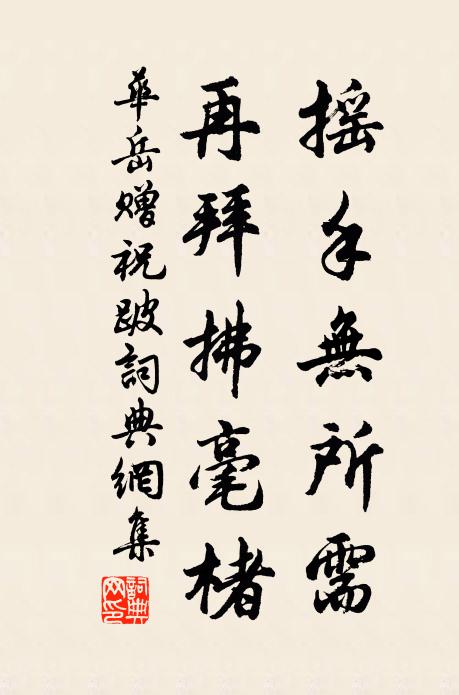 搖手無所需
再拜拂毫楮
華岳贈祝跛詞典網集
詞典網印